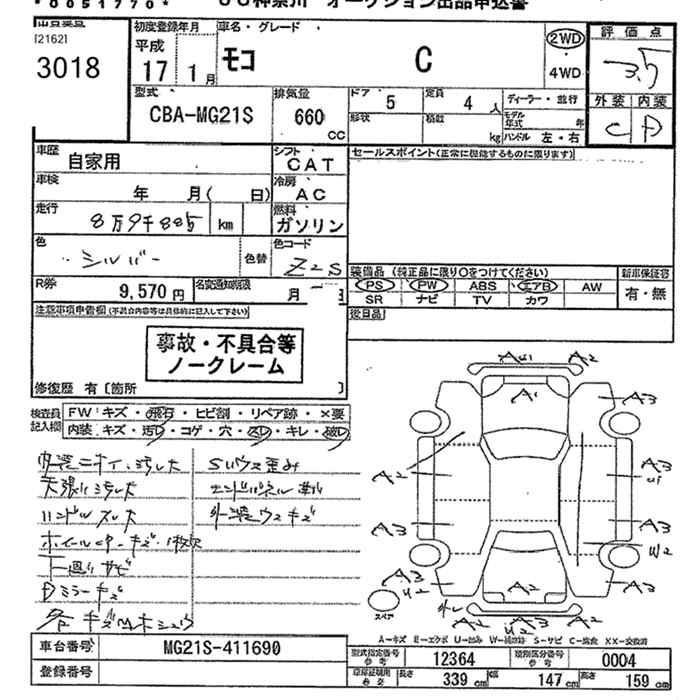 *0051770*
JU神奈川 オークション出品申込書
[2162]
3018
初度登録年月
平成
17 1月
車名・グレード
モコ C
2WD
4WD
評価点
3.5
外装 内装
C D
型式
CBA-MG21S
排気量
660
CC
ドア
5
定員
4 人
ディーラー・並行
形状
積載
kg
モデル年式 年
ハンドル 左・右
車歴
自家用
シフト
CAT
セールスポイント(正常に機能するものに限ります)
車検
年 月( 日)
冷房
AC
走行
8万9千885 km
燃料
ガソリン
色
シルバー
色替
色コード
Z2S
R券
9,570円
名変通知期限
月 日
装備品 (純正品に限り○をつけてください)
PS PW ABS エアB AW
SR ナビ TV カワ
新車保証書
有・無
注意事項申告欄(不具合内容等は具体的に記入して下さい)
後日品
事故・不具合等
ノークレーム
修復歴 有〔箇所 〕
検査員
記入欄
FW キズ・飛石・ヒビ割・リペア跡・×要
内装 キズ・汚れ・コゲ・穴・スレ・キレ・破れ
内装ニオイ、ヨゴレ大
天張リヨゴレ大
ハンドルスレ大
下廻りサビ
Dミラーキズ
エンドパネル
外装ウスキズ
AU1 A2
A1 A3
A2 A3
U1
A3 A3
W2
A3 A2 A3
U2
スペア
A2 A2
A-キズ E-エクボ U-凹み W-補修跡 S-サビ C-腐食 XX-交換済
車台番号
MG21S-411690
登録番号
型式指定番号
参考
12364
類別区分番号
参考
0004
車庫証明用
参考
長さ 339 cm 幅 147 cm 高さ 159 cm